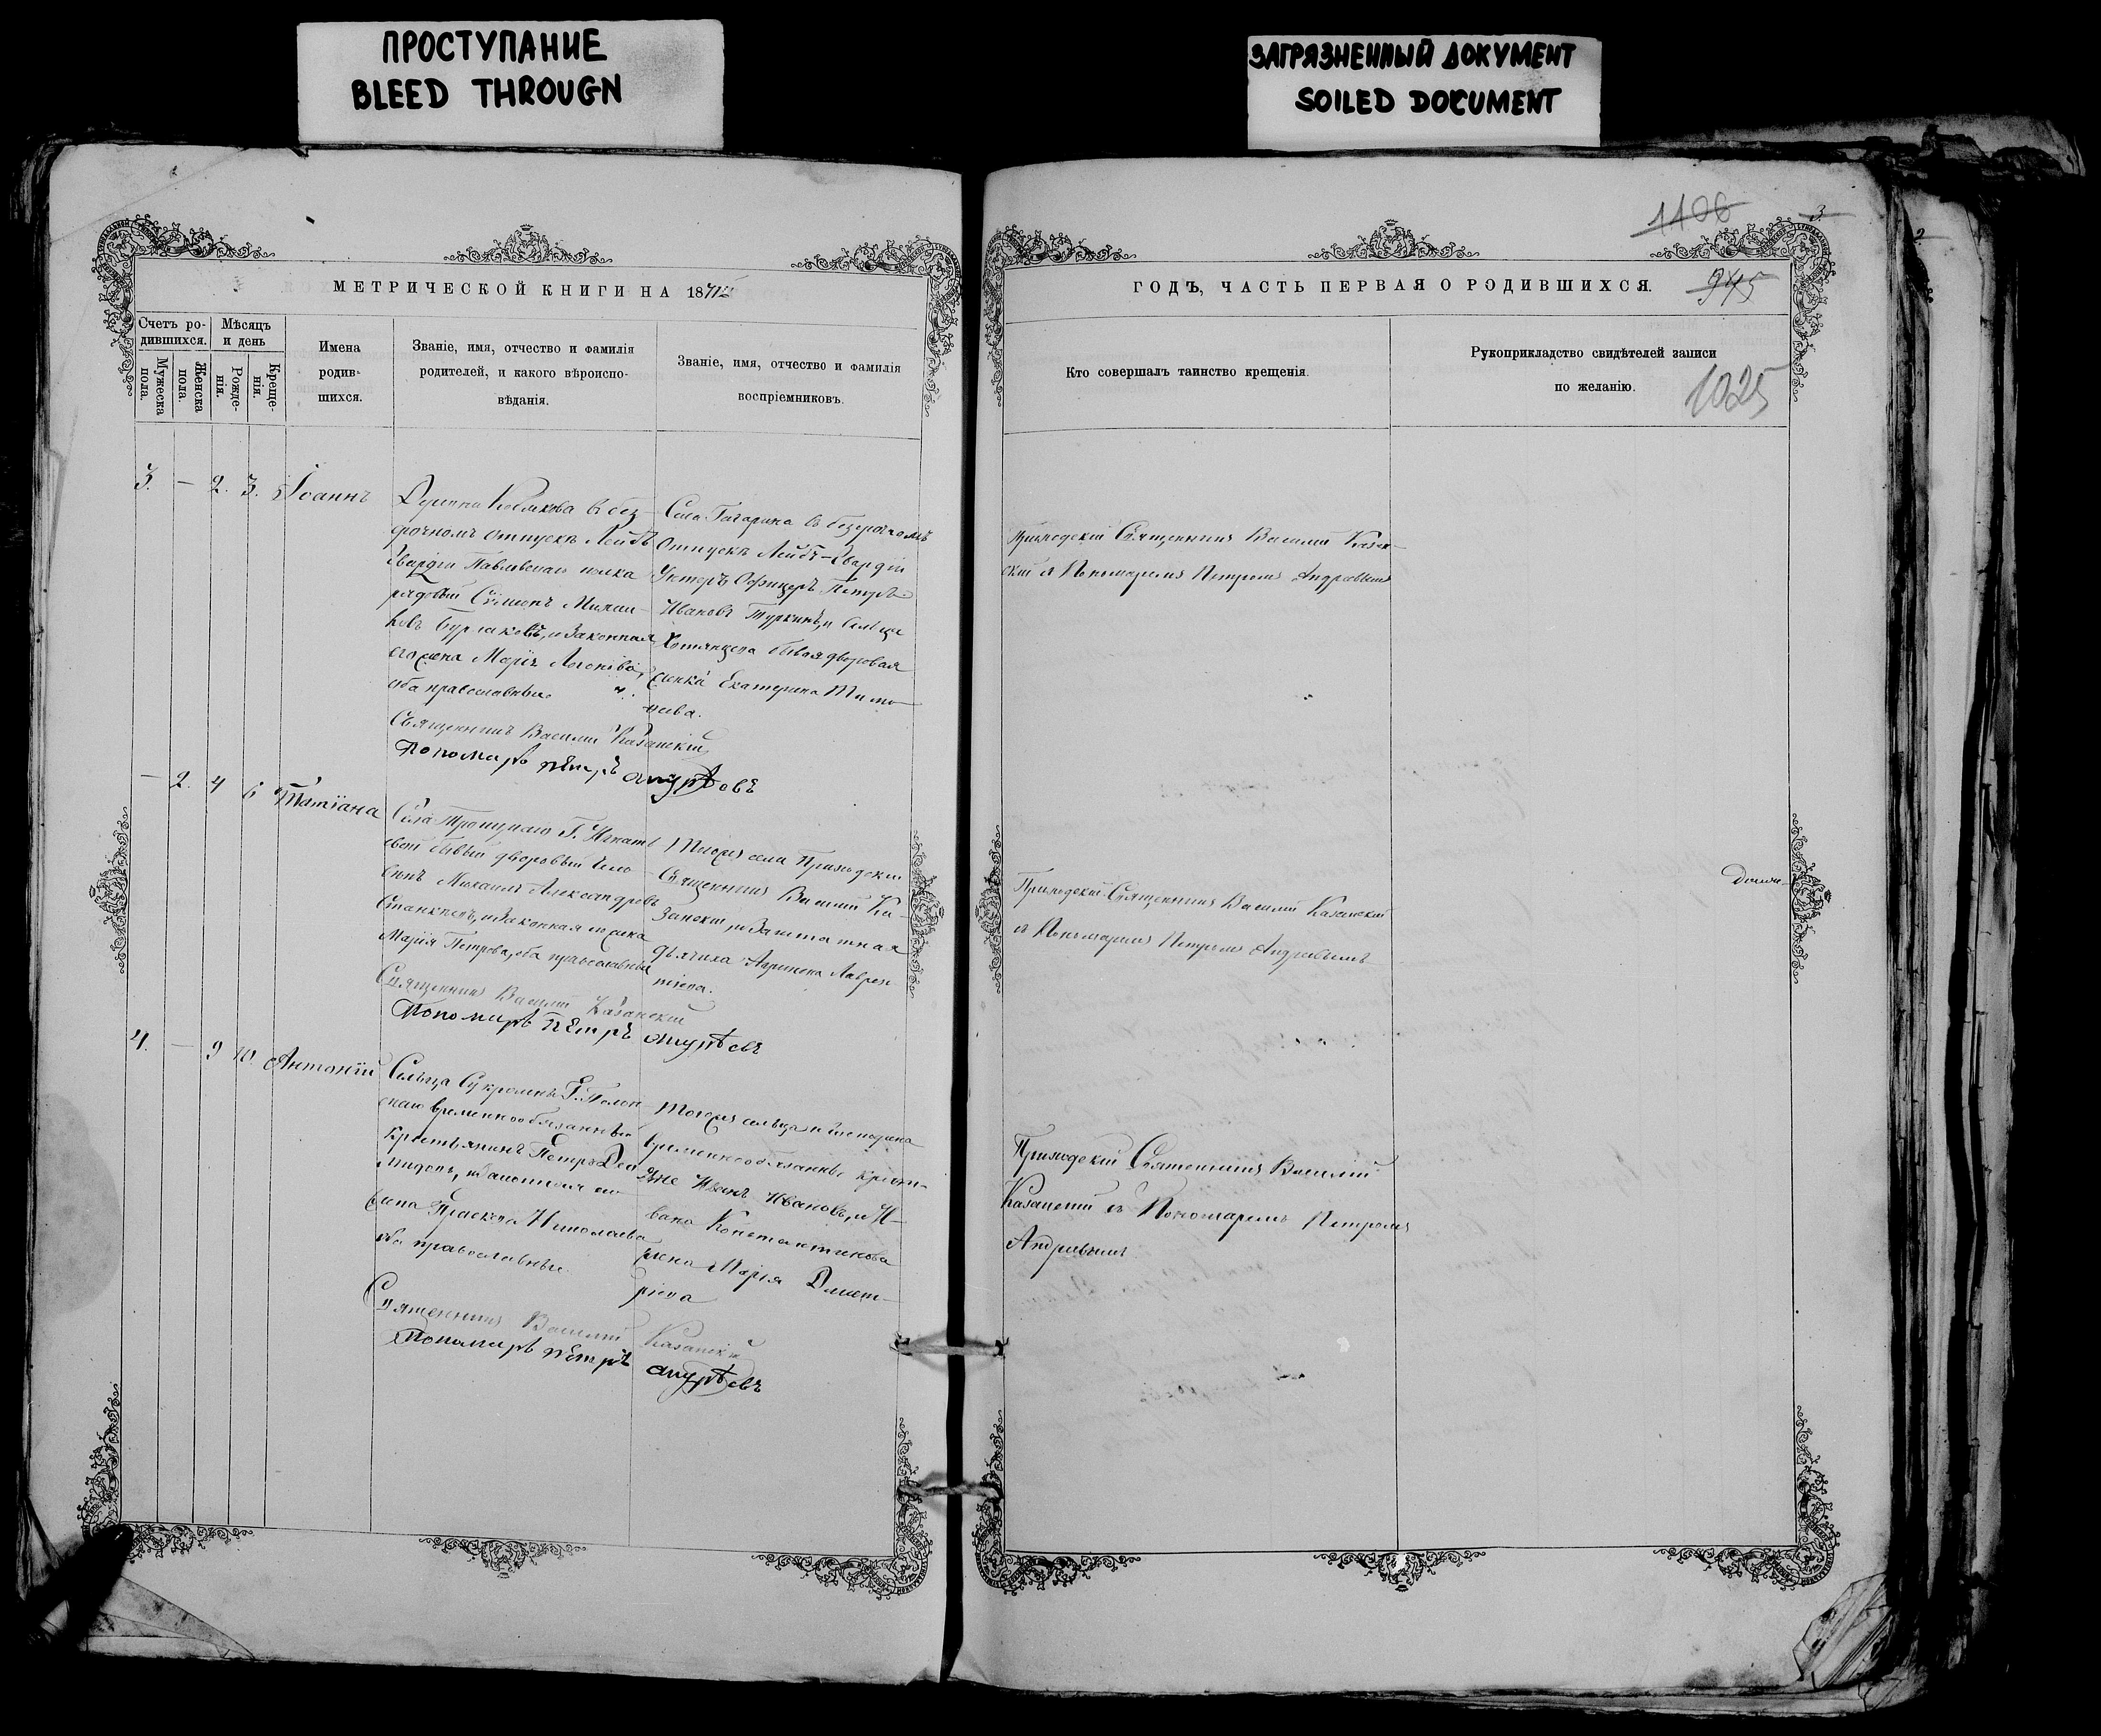 ПРОСТУПАНИЕ
BLEED THROUGN
ЗАГРЯЗНЕННЫЙ ДОКУМЕНТ
SOILED DOCUMENT
1106
3.
МЕТРИЧЕСКОЙ КНИГИ НА 187
Счетъ ро-
дившихся.
Мужеска
пола.
Женска
пола.
Мѣсяцъ
и день
Рожде-
нія.
Креще-
нія.
Имена
родив-
шихся.
Званіе, имя, отчество и фамилія
родителей, и какого вѣроиспо-
вѣданія.
Званіе, имя, отчество и фамилія
воспріемниковъ.
3. — 2. 3. Іоаннъ
въ без-
срочномъ отпускѣ Лейбъ
Гвардіи Павловскаго полка
рядовый
Бурлаковъ, и законная
его жена Марія
оба православные.
Священникъ Василій Казанскій
Пономарь Петръ Андрѣевъ
Села Гагарина въ безсрочномъ
отпускѣ Лейбъ-Гвардіи
Унтеръ Офицеръ Петръ
Ивановъ Туркинъ, и Сельца
бывая дворовая
Екатерина Тимо-
— 2. 4 6 Татіана
Села Троицкаго Г.
бывый дворовый
Михаилъ Александровъ
и законная его жена
Марія Петрова, оба православные
Священникъ Василій Казанскій
Пономарь Петръ Андрѣевъ
Тогоже села Приходскій
Священникъ Василій Ка-
занскій, и Заштатная
Лаврен-
тіева.
4. — 9 10. Антоній
Сельца Сукромны Г.
скаго временнообязанный
Крестьянинъ Петръ
и законная его
жена Праскева Николаева
оба православные.
Священникъ Василій Казанскій
Пономарь Петръ Андрѣевъ
Тогоже сельца и господина
временнообязанные кресть-
яне Иванъ Ивановъ, и И-
вана Константинова
жена Марія Димит-
ріева
ГОДЪ, ЧАСТЬ ПЕРВАЯ О РОДИВШИХСЯ.
945
Кто совершалъ таинство крещенія.
Рукоприкладство свидѣтелей записи
по желанію.
1025
Приходскій Священникъ Василій Казан-
скій съ Пономаремъ Петромъ Андреевымъ
Приходскій Священникъ Василій Казанскій
съ Пономаремъ Петромъ Андреевымъ
Приходскій Священникъ Василій
Казанскій съ Пономаремъ Петромъ
Андреевымъ